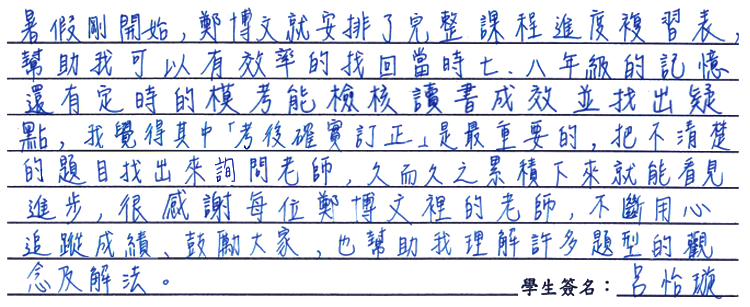 暑假剛開始，鄭博文就安排了完整課程進度複習表，
幫助我可以有效率的找回當時七、八年級的記憶
還有定時的模考能檢核讀書成效並找出疑
點，我覺得其中「考後確實訂正」是最重要的，把不清楚
的題目找出來詢問老師，久而久之累積下來就能看見
進步，很感謝每位鄭博文裡的老師，不斷用心
追蹤成績、鼓勵大家，也幫助我理解許多題型的觀
念及解法。 學生簽名：呂怡璇